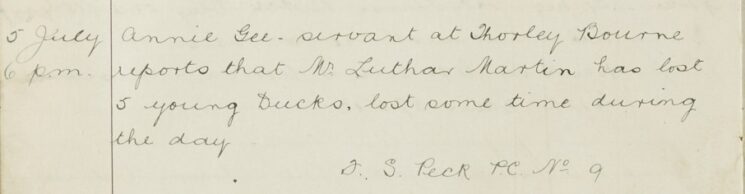 5 July Annie Gee - servant at Thorley Bourne
6 p.m. reports that Mr. Luthar Martin has lost
5 young Ducks, lost some time during
the day
D. S. Peck P.C. No. 9